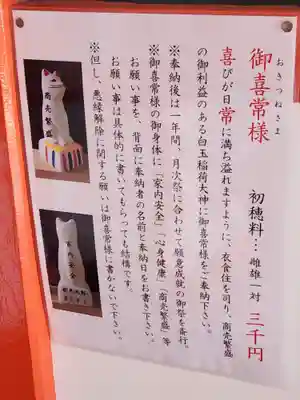 おきつねさよ
御喜常様
初穂料…雌雄一対 三千円
喜びが日常に満ち溢れますように、衣食住を司り、商売繁盛
の御利益のある白玉稲荷大神に御喜常様をご奉納下さい。
※奉納後は一年間、月次祭に合わせて願意成就の御祭を斎行。
※御喜常様の御身体に「家内安全」「心身健康」「商売繁盛」等
お願い事を、背面に奉納者の名前と奉納日をお書き下さい。
お願い事は具体的に書いてもらっても結構です。
※但し、悪縁解除に関する願いは御喜常様に書かないで下さい。
商売繁盛